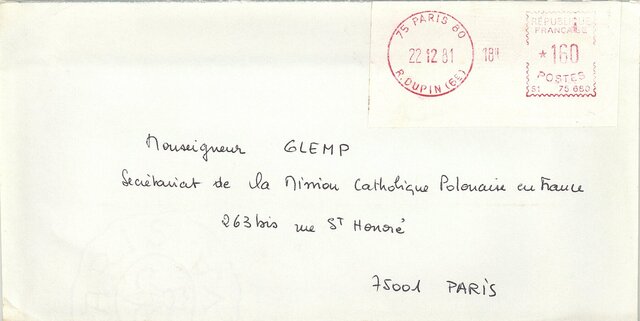 75 PARIS 60
22 12 81
18H
R. DUPIN (6E)
RÉPUBLIQUE
FRANÇAISE
*160
POSTES
75 660
Monseigneur GLEMP
Secrétariat de la Mission Catholique Polonaise en France
263 bis rue ST Honoré
75001 PARIS